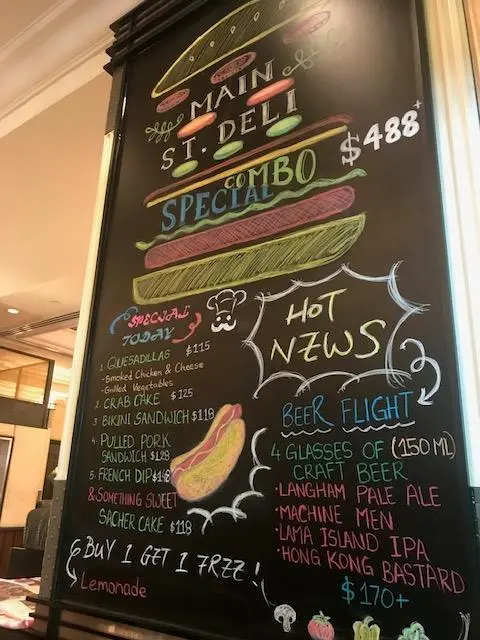 MAIN
ST. DELI
$488+
COMBO
SPECIAL
SPECIAL
TODAY
1. QUESADILLAS $115
- Smoked Chicken & Cheese
- Grilled Vegetables
2. CRAB CAKE $125
3. BIKINI SANDWICH $118
4. PULLED PORK
SANDWICH $128
5. FRENCH DIP $148
& SOMETHING SWEET
SACHER CAKE $118
BUY 1 GET 1 FREE!
Lemonade
HOT
NEWS
BEER FLIGHT
4 GLASSES OF (150ML)
CRAFT BEER
• LANGHAM PALE ALE
• MACHINE MEN
• LAMA ISLAND IPA
• HONG KONG BASTARD
$170+